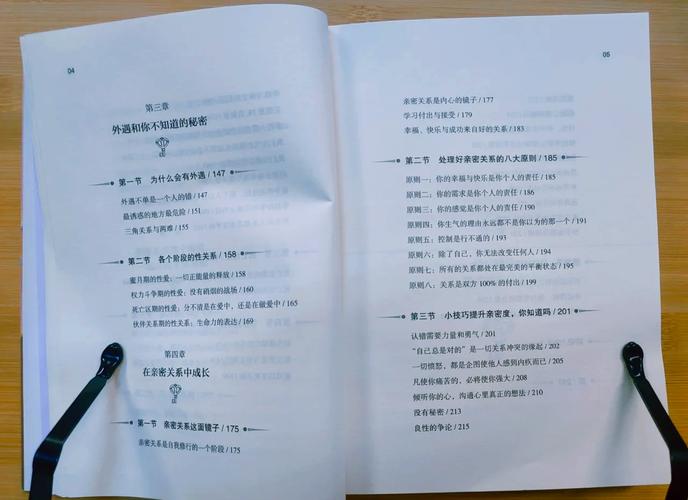 04
第三章
外遇和你不知道的秘密
第一节 为什么会有外遇 / 147
外遇不单是一个人的错 / 147
最诱惑的地方最危险 / 151
三角关系与两难 / 155
第二节 各个阶段的性关系 / 158
蜜月期的性爱：一切正能量的释放 / 158
权力斗争期的性爱：没有硝烟的战场 / 160
死亡区期的性爱：分不清是在爱中，还是在做爱中 / 165
伙伴关系期的性关系：生命力的表达 / 169
第四章
在亲密关系中成长
第一节 亲密关系这面镜子 / 175
亲密关系是自我修行的一个阶段 / 175
05
亲密关系是内心的镜子 / 177
学习付出与接受 / 179
幸福、快乐与成功来自好的关系 / 183
第二节 处理好亲密关系的八大原则 / 185
原则一：你的幸福与快乐是你个人的责任 / 185
原则二：你的需求是你个人的责任 / 186
原则三：你的感觉是你个人的责任 / 190
原则四：你生气的理由永远都不是你以为的那一个 / 191
原则五：控制是行不通的 / 193
原则六：除了自己，你无法改变任何人 / 194
原则七：所有的关系都处在最完美的平衡状态 / 195
原则八：关系是双方 100% 的付出 / 199
第三节 小技巧提升亲密度，你知道吗 / 201
认错需要力量和勇气 / 201
“自己总是对的”是一切关系冲突的缘起 / 202
一切愤怒，都是企图使他人感到内疚而已 / 205
凡使你痛苦的，必将使你强大 / 208
倾听你的心，沟通心里真正的想法 / 210
没有秘密 / 213
良性的争论 / 215